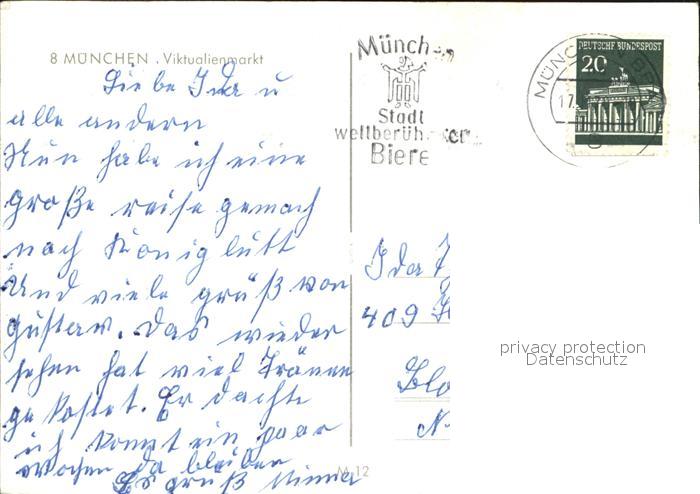 8 MÜNCHEN . Viktualienmarkt
Liebe Ida u
alle andern
Nun habe ich eine
große reise gemach
nach Königlutt
Und viele grüß von
Gustav. Das wieder
sehen hat viel Tränen
gekostet. Er dachte
ich kommt ein paar
Wochen da bleiben
Es grüß Minna
München
Stadt
weltberühmter
Biere
MÜNCHEN
17.
DEUTSCHE BUNDESPOST
20
Ida
409
privacy protection
Datenschutz
M 12